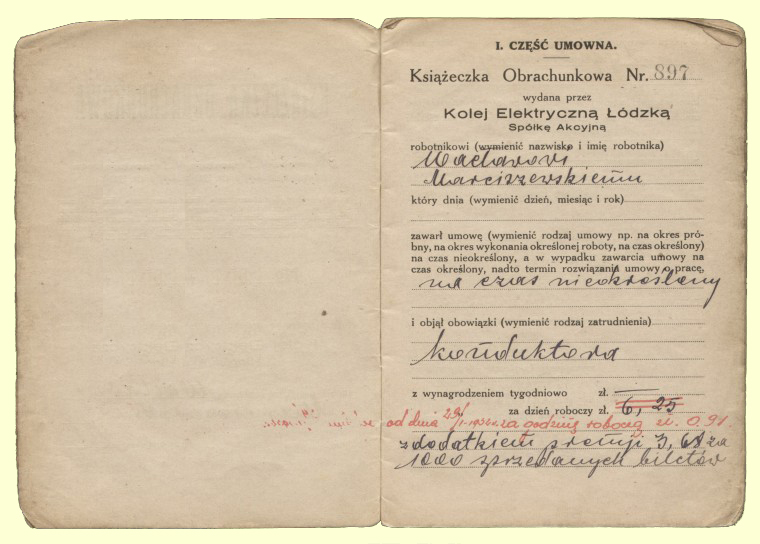 I. CZĘŚĆ UMOWNA.
Książeczka Obrachunkowa Nr. 897
wydana przez
Kolej Elektryczną Łódzką
Spółkę Akcyjną
robotnikowi (wymienić nazwisko i imię robotnika)
Wacławowi
Marciszewskiemu
który dnia (wymienić dzień, miesiąc i rok)
zawarł umowę (wymienić rodzaj umowy np. na okres pró-
bny, na okres wykonania określonej roboty, na czas określony)
na czas nieokreślony, a w wypadku zawarcia umowy na
czas określony, nadto termin rozwiązania umowy o pracę,
na czas nieokreślony
i objął obowiązki (wymienić rodzaj zatrudnienia)
konduktora
z wynagrodzeniem tygodniowo zł. —
za dzień roboczy zł. 6,25
od dnia za godzinę roboczą zł. 0.91.
z dodatkiem premji 3,68 za
1000 sprzedanych biletów